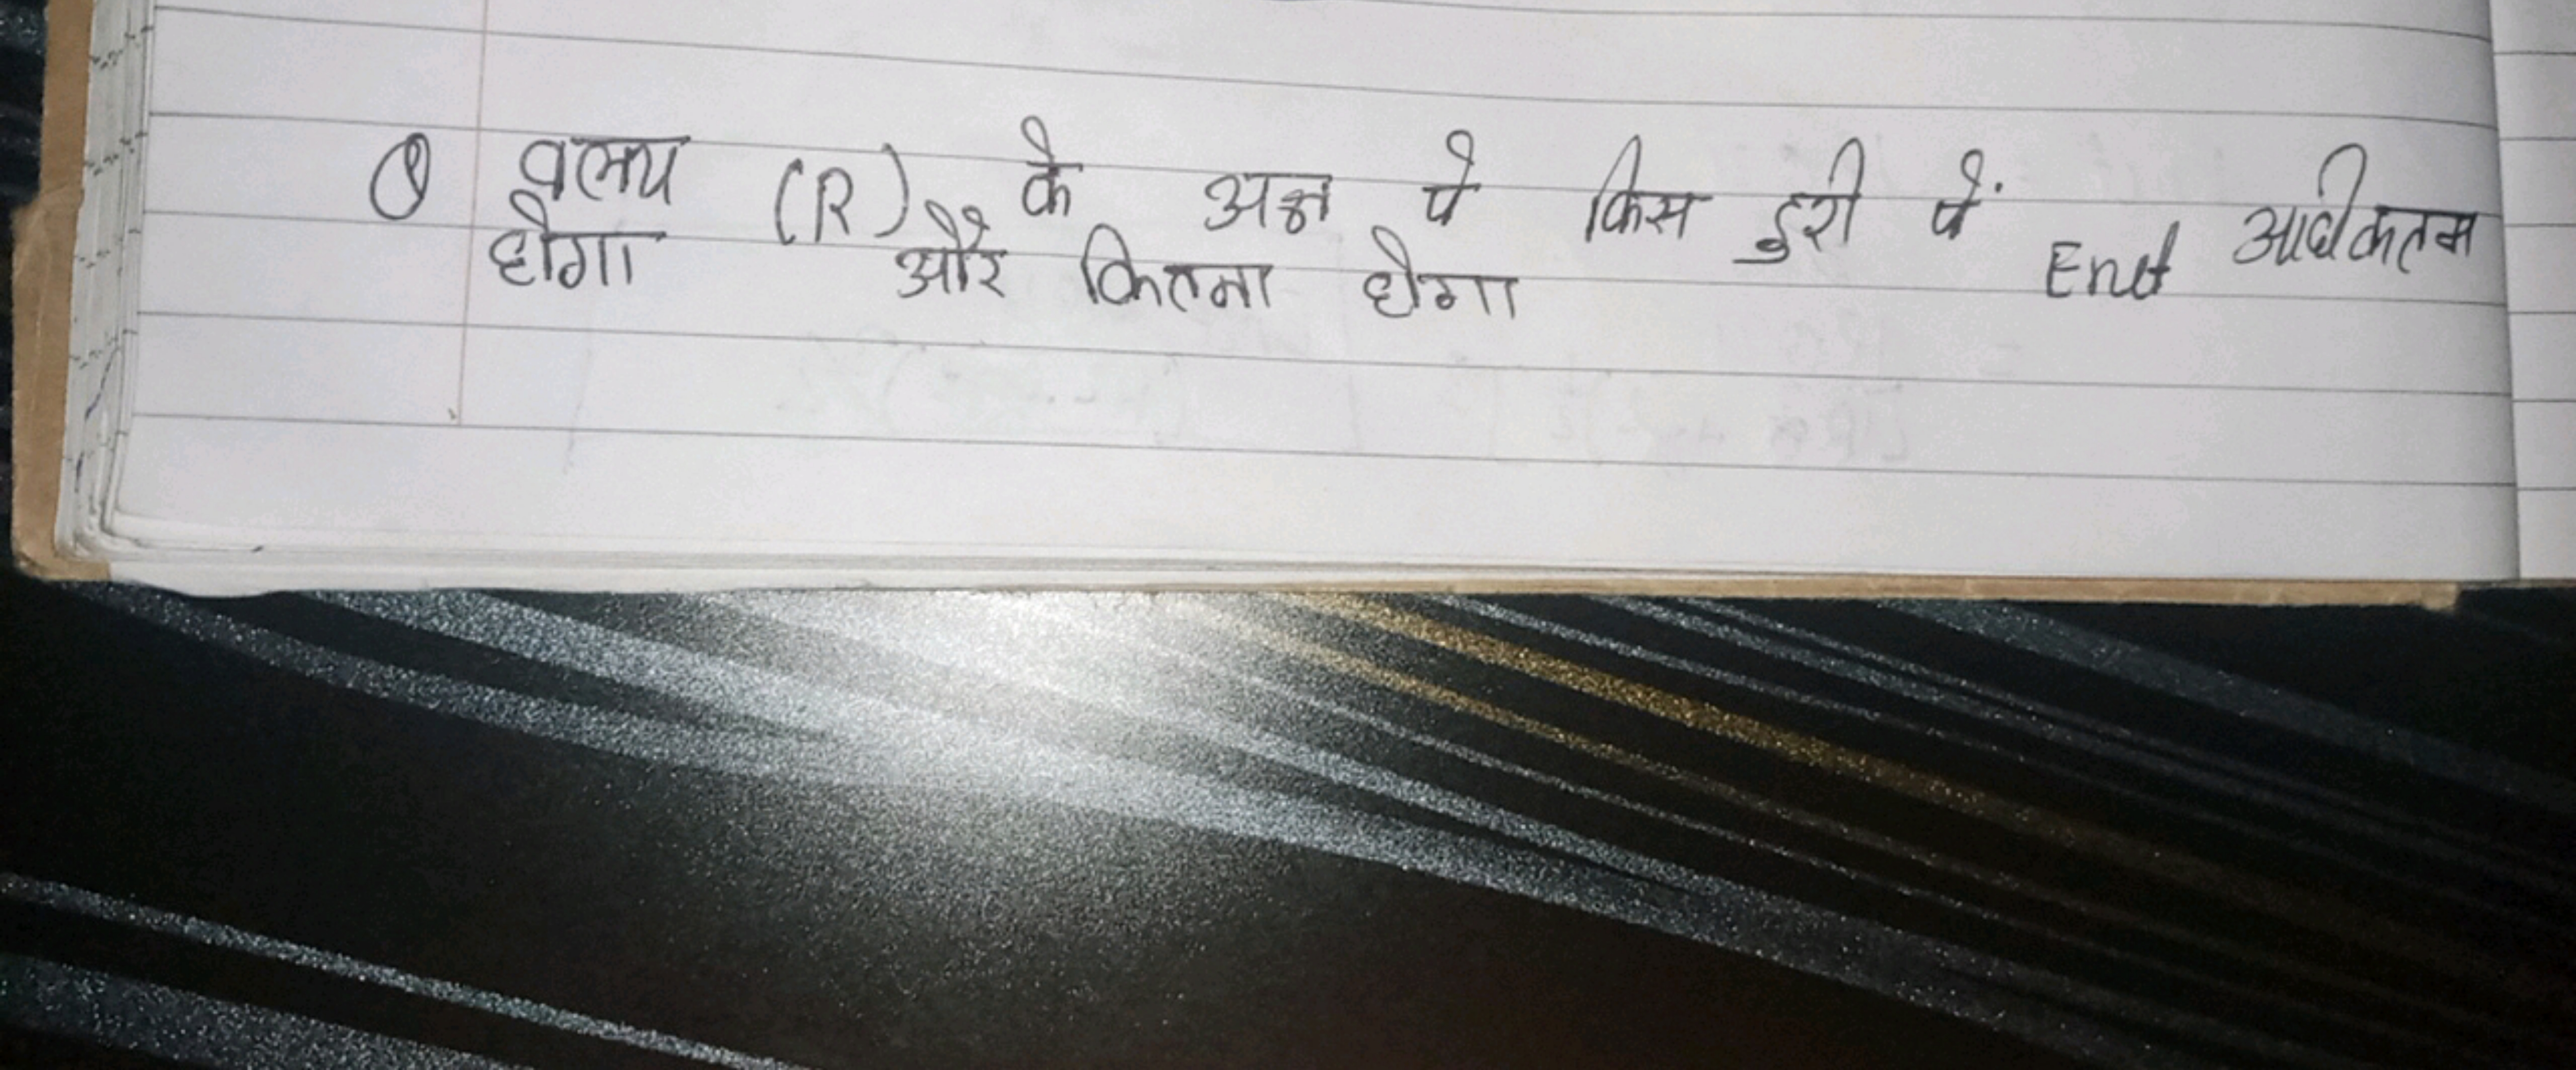 Q वलय (R) के अक्ष पे किस दुरी पें End अधीकतम
होगा और कितना होगा